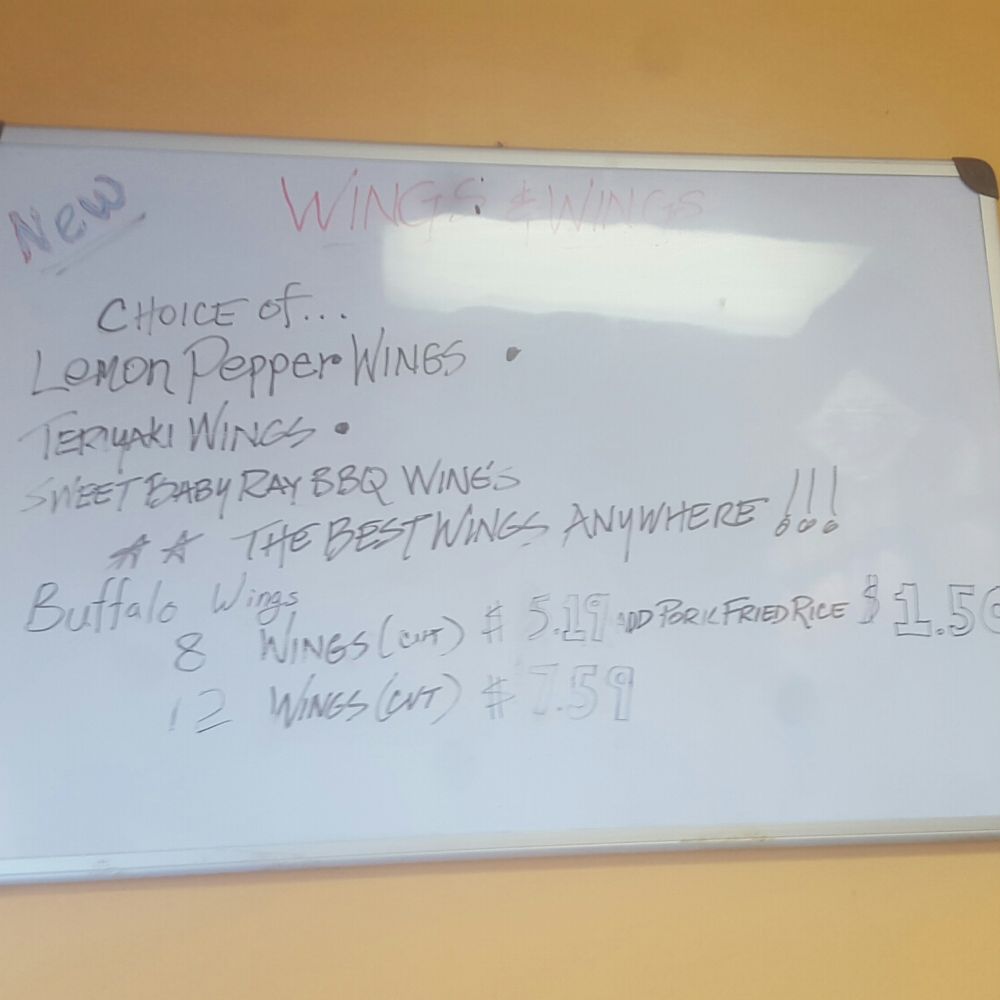 New
WINGS & WINGS
CHOICE of...
Lemon Pepper WINGS
TERIYAKI WINGS
SWEET BABY RAY BBQ WINGS
THE BEST WINGS ANYWHERE !!!
Buffalo Wings
8 WINGS (CUT) $ 5.19 ADD PORK FRIED RICE $ 1.50
12 WINGS (CUT) $ 7.59